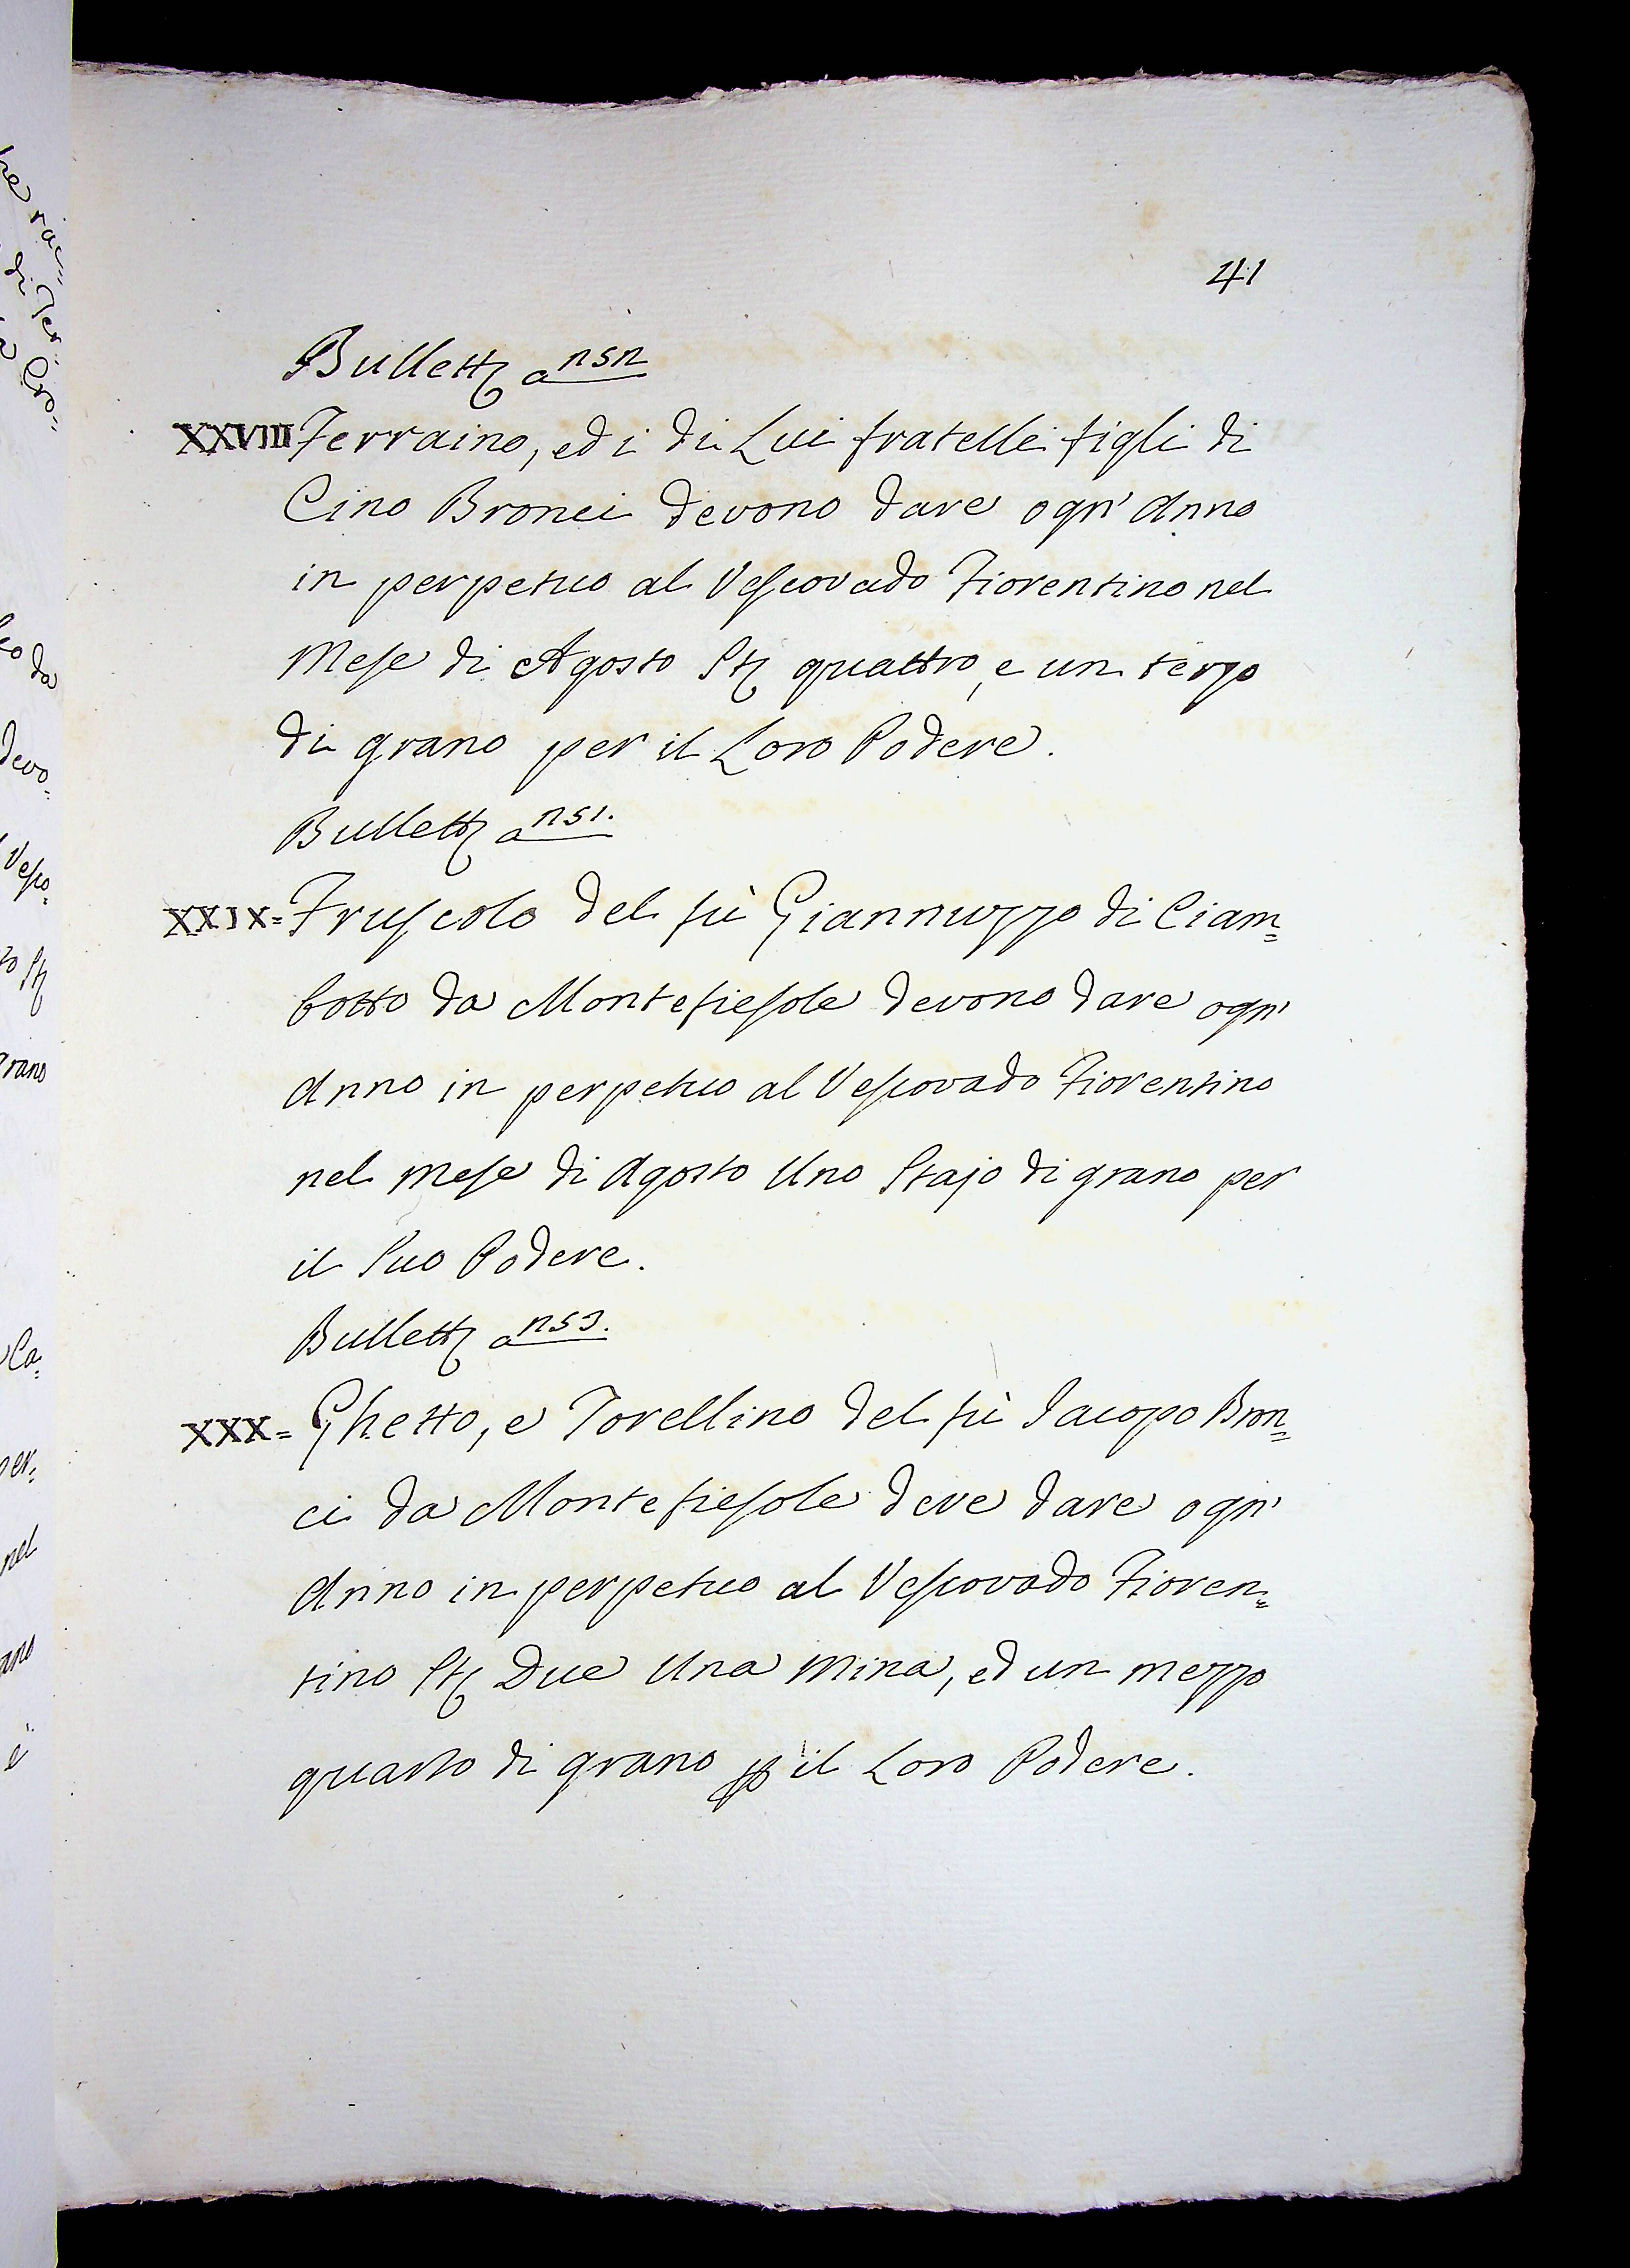 41
Bullett a
XXVIII Ferraino, ed i di Lui fratelli figli di
Cino Bronci devono dare ogn' Anno
in perpetuo al Vescovado Fiorentino nel
Mese di Agosto St quattro, e un terzo
di grano per il Loro Podere.
Bullett a ns1.
XXIX= Fruscolo del fù Giannuzzo di Ciam=
botto da Montefiesole devono dare ogn'
Anno in perpetuo al Vescovado Fiorentino
nel mese di Agosto Uno Stajo di grano per
il Suo Podere.
Bullett a ns3.
XXX= Ghetto, e Torellino del fù Iacopo Bron=
ci da Montefiesole deve dare ogn'
Anno in perpetuo al Vescovado Fioren=
tino St Due Una Mina, ed un mezzo
quarto di grano p il Loro Podere.